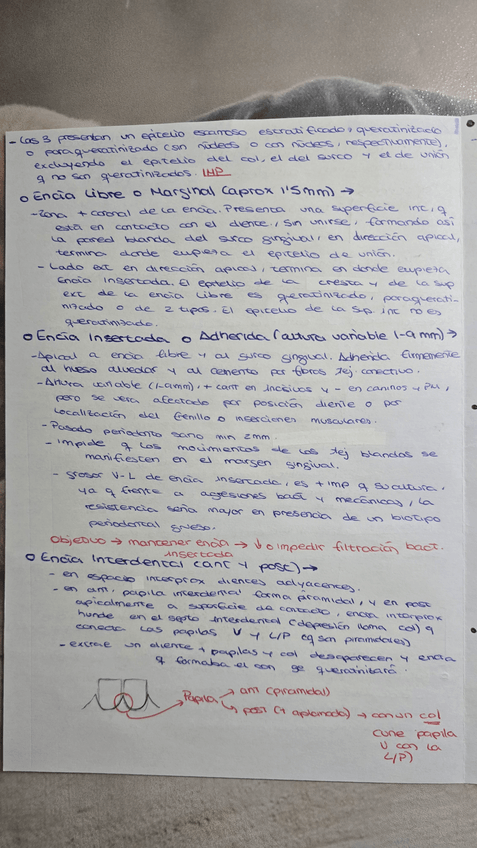 - Las 3 presentan un epitelio escamoso estratificado, queratinizado
o paraqueratinizado (sin núcleos o con núcleos, respectivamente),
excluyendo el epitelio del col, el del surco y el de unión
q no son queratinizados. IMP
o Encía Libre o Marginal (aprox 1'5mm) →
- Zona + coronal de la encía. Presenta una superficie int, q
está en contacto con el diente, sin unirse, formando así
la pared blanda del surco gingival, en dirección apical,
termina donde empieza el epitelio de unión.
- Lado ext en dirección apical, termina en donde empieza
Encía Insertada. El epitelio de la cresta y de la sup
ext de la encía libre es queratinizado, paraquerati-
nizado o de 2 tipos. El epitelio de la sup int no es
queratinizado.
o Encía Insertada o Adherida (altura variable 1-9 mm) →
- Apical a encía libre y al surco gingival. Adherida firmemente
al hueso alveolar y al cemento por fibras tej conectivo.
- Altura variable (1-9mm), + cant en incisivos y - en caninos y PM,
pero se vera afectado por posición diente o por
localización del frenillo o inserciones musculares.
- Pasado periodonto sano min 2mm.
- Impide q los movimientos de los tej blandos se
manifiesten en el margen gingival.
- grosor V-L de encía insertada, es + imp q su altura,
ya q frente a agresiones bact y mecánicas, la
resistencia seña mayor en presencia de un biotipo
periodontal grueso.
Objetivo → mantener encía insertada → ↓ o impedir filtración bact.
o Encía Interdental (ant y post) →
- en espacio interprox dientes adyacentes.
- en ant, papila interdental forma piramidal, y en post
apicalmente a superficie de contacto, encía interprox
hunde en el septo interdental (depresión llama col) q
conecta las papilas V y L/P (q son piramidales)
- extrae un diente → papilas y col desaparecen y encía
q formaba el col se queratinizará.
Papila → ant (piramidal)
→ post (+ aplanada) → con un col
(une papila
V con la
L/P)